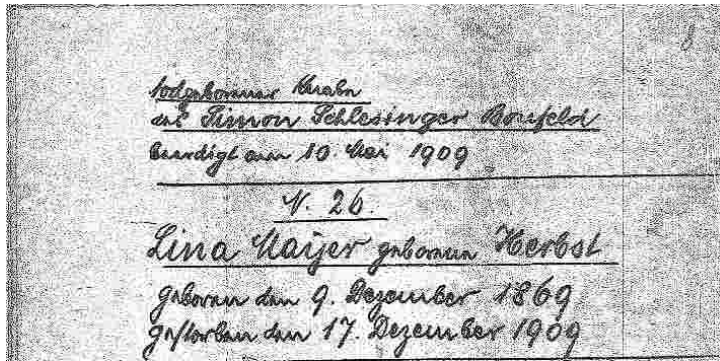 8
todgeborener Knabe
des Simon Schlesinger Bonfeld
beerdigt am 10. Mai 1909
N. 26.
Lina Maijer geborene Herbst
geboren den 9. Dezember 1869
gestorben den 17. Dezember 1909